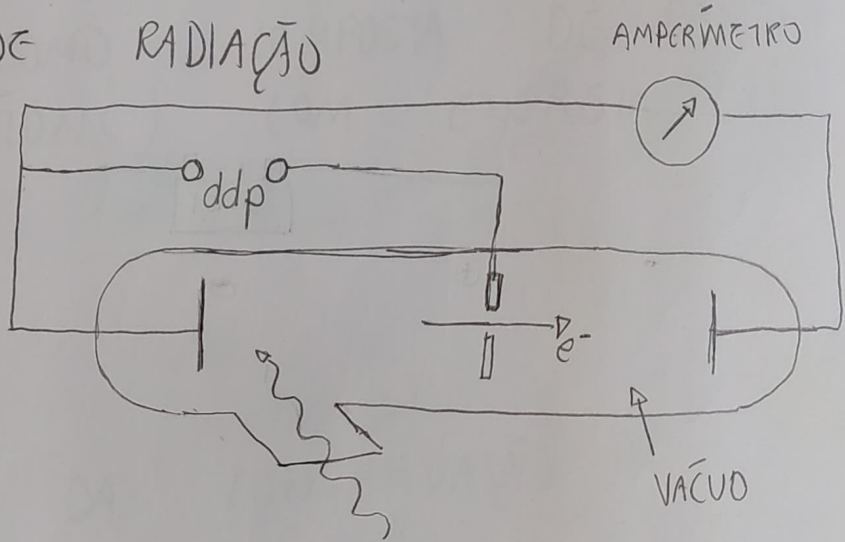 DE RADIAÇÃO
AMPERÍMETRO
ddp
e-
VÁCUO